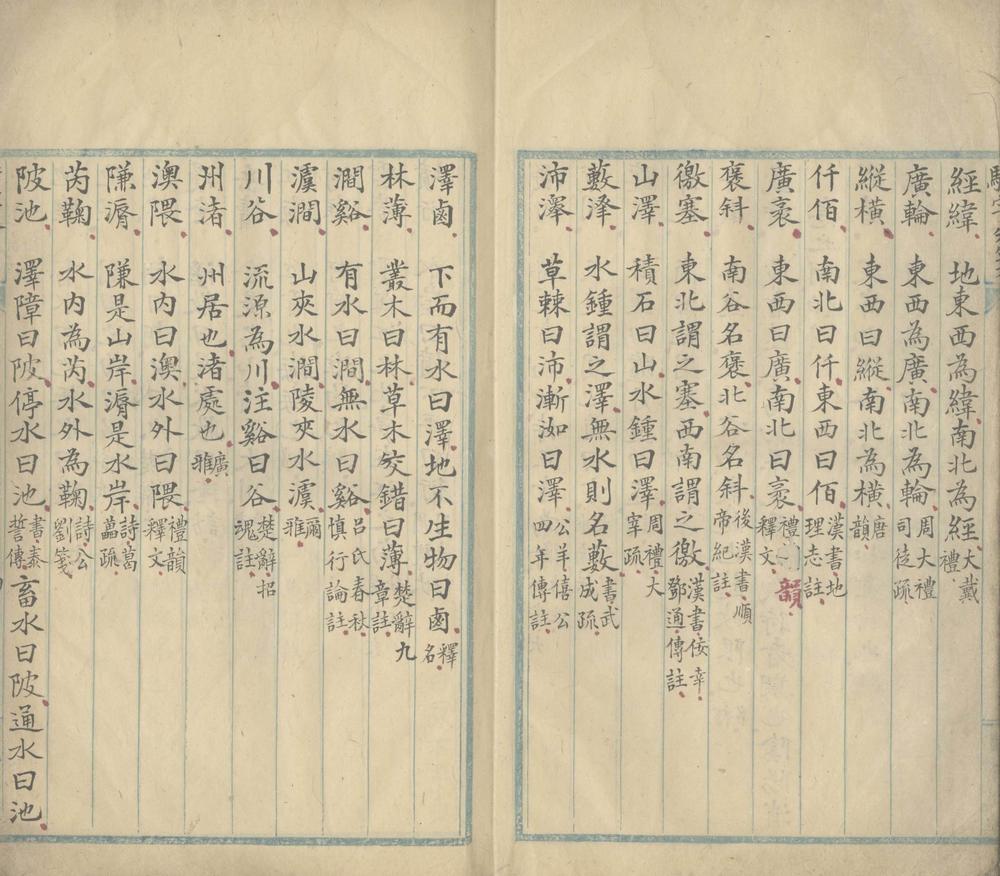 經緯 地東西為緯南北為經大戴禮
廣輪 東西為廣南北為輪周大禮司徒疏
縱橫 東西曰縱南北為橫唐韻
仟佰 南北曰仟東西曰佰漢書地理志註
廣袤 東西曰廣南北曰袤禮韻釋文
褒斜 南谷名褒北谷名斜後漢書順帝紀註
徼塞 東北謂之塞西南謂之徼漢書佞幸鄧通傳註
山澤 積石曰山水鍾曰澤周禮大宰疏
藪澤 水鍾謂之澤無水則名藪書武成疏
沛澤 草棘曰沛漸洳曰澤公羊僖公四年傳註
澤鹵 下而有水曰澤地不生物曰鹵釋名
林薄 叢木曰林草木交錯曰薄楚辭九章註
澗谿 有水曰澗無水曰谿呂氏春秋慎行論註
澞澗 山夾水澗陵夾水澞爾雅
川谷 流源為川注谿曰谷楚辭招魂註
州渚 州居也渚處也廣雅
澳隈 水內曰澳水外曰隈禮韻釋文
隒漘 隒是山岸漘是水岸詩葛藟疏
芮鞫 水內為芮水外為鞫詩公劉箋
陂池 澤障曰陂停水曰池書泰誓傳畜水曰陂通水曰池